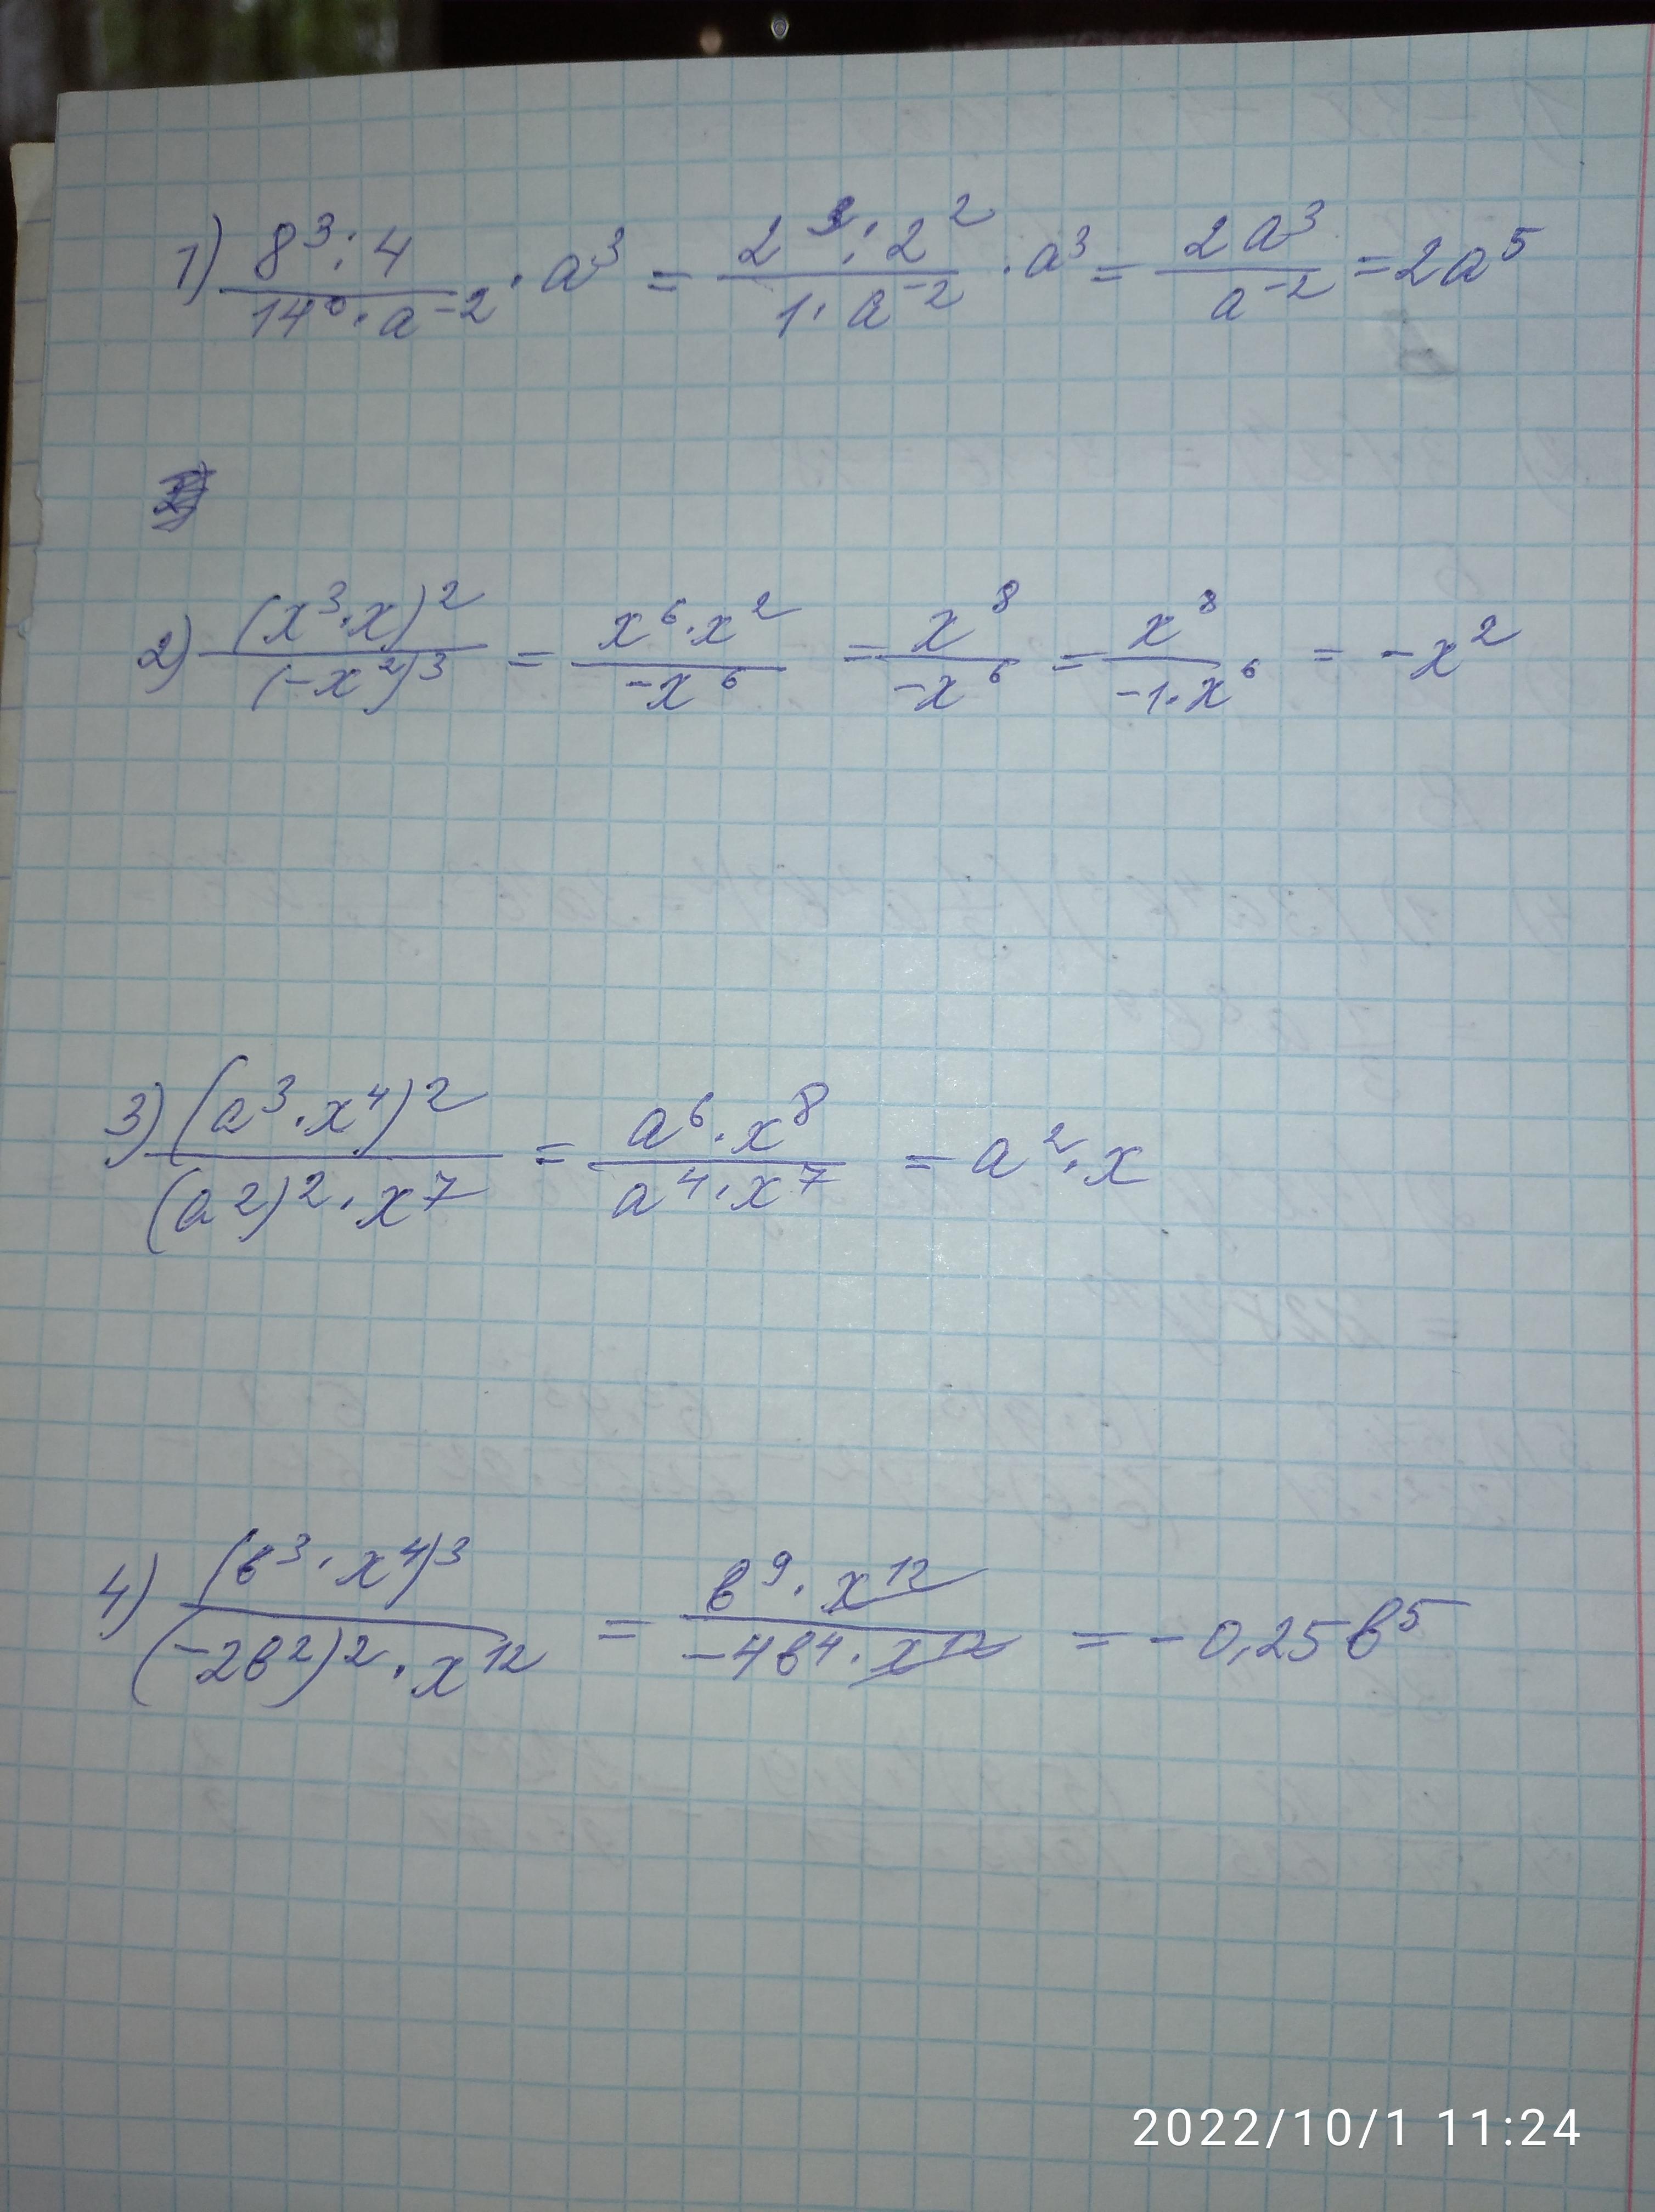 1) (8³ : 4)/(14⁰ · a⁻²) · a³ = (2³ : 2²)/(1 · a⁻²) · a³ = 2a³/a⁻² = 2a⁵
2) (x³·x)²/(-x²)³ = x⁶·x²/-x⁶ = x⁸/-x⁶ = x⁸/-1·x⁶ = -x²
3) (a³·x⁴)²/(a2)²·x⁷ = a⁶·x⁸/a⁴·x⁷ = a²·x
4) (в³·x⁴)³/(-2в²)²·x¹² = в⁹·x¹²/-4в⁴·x¹² = -0,25в⁵
2022/10/1 11:24